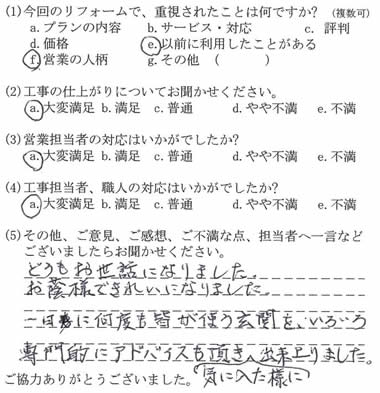 (1)今回のリフォームで、重視されたことは何ですか? (複数可)
a.プランの内容 b.サービス・対応 c. 評判
d.価格 e.以前に利用したことがある
f.営業の人柄 g.その他 ( )
(2)工事の仕上がりについてお聞かせください。
a.大変満足 b.満足 c.普通 d.やや不満 e.不満
(3)営業担当者の対応はいかがでしたか?
a.大変満足 b.満足 c.普通 d.やや不満 e.不満
(4)工事担当者、職人の対応はいかがでしたか?
a.大変満足 b.満足 c.普通 d.やや不満 e.不満
(5)その他、ご意見、ご感想、ご不満な点、担当者へ一言など
ございましたらお聞かせください。
どうもお世話になりました。
お蔭様できれいになりました。
一日に何度も皆が使う玄関を、いろいろ
専門的にアドバイスも頂き、出来上りました。
気に入た様に
ご協力ありがとうございました。